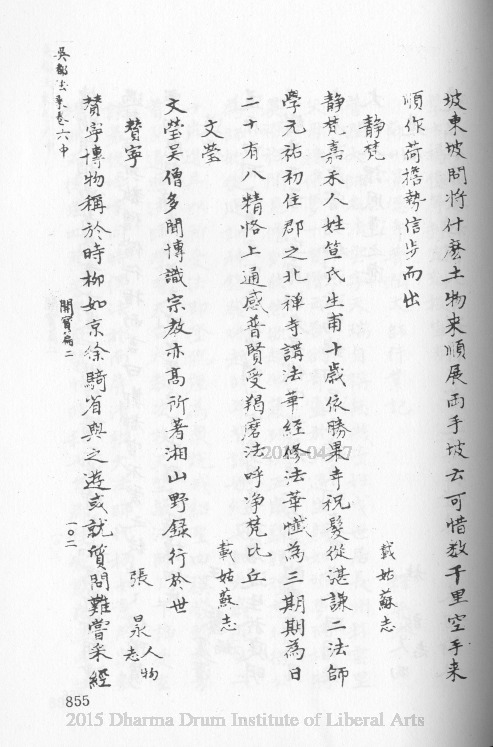 坡東坡問將什麼土物来順展両手坡云可惜数千里空手来
順作荷擔勢信步而出
載姑蘇志
静梵
静梵嘉禾人姓笪氏生甫十歲依勝果寺祝髮從湛謙二法師
學元祐初住郡之北禅寺講法華經修法華懺為三期期為日
二十有八精恪上通感普賢受羯磨法呼净梵比丘
載姑蘇志
文瑩
文瑩吴僧多聞博識宗教亦高所著湘山野録行於世
張泉人物志
贊寧
贊寧博物稱於時柳如京徐騎省與之遊或就質問難嘗采經
吴都法乘卷六中
開寶篇二
一〇二
855
2015 Dharma Drum Institute of Liberal Arts